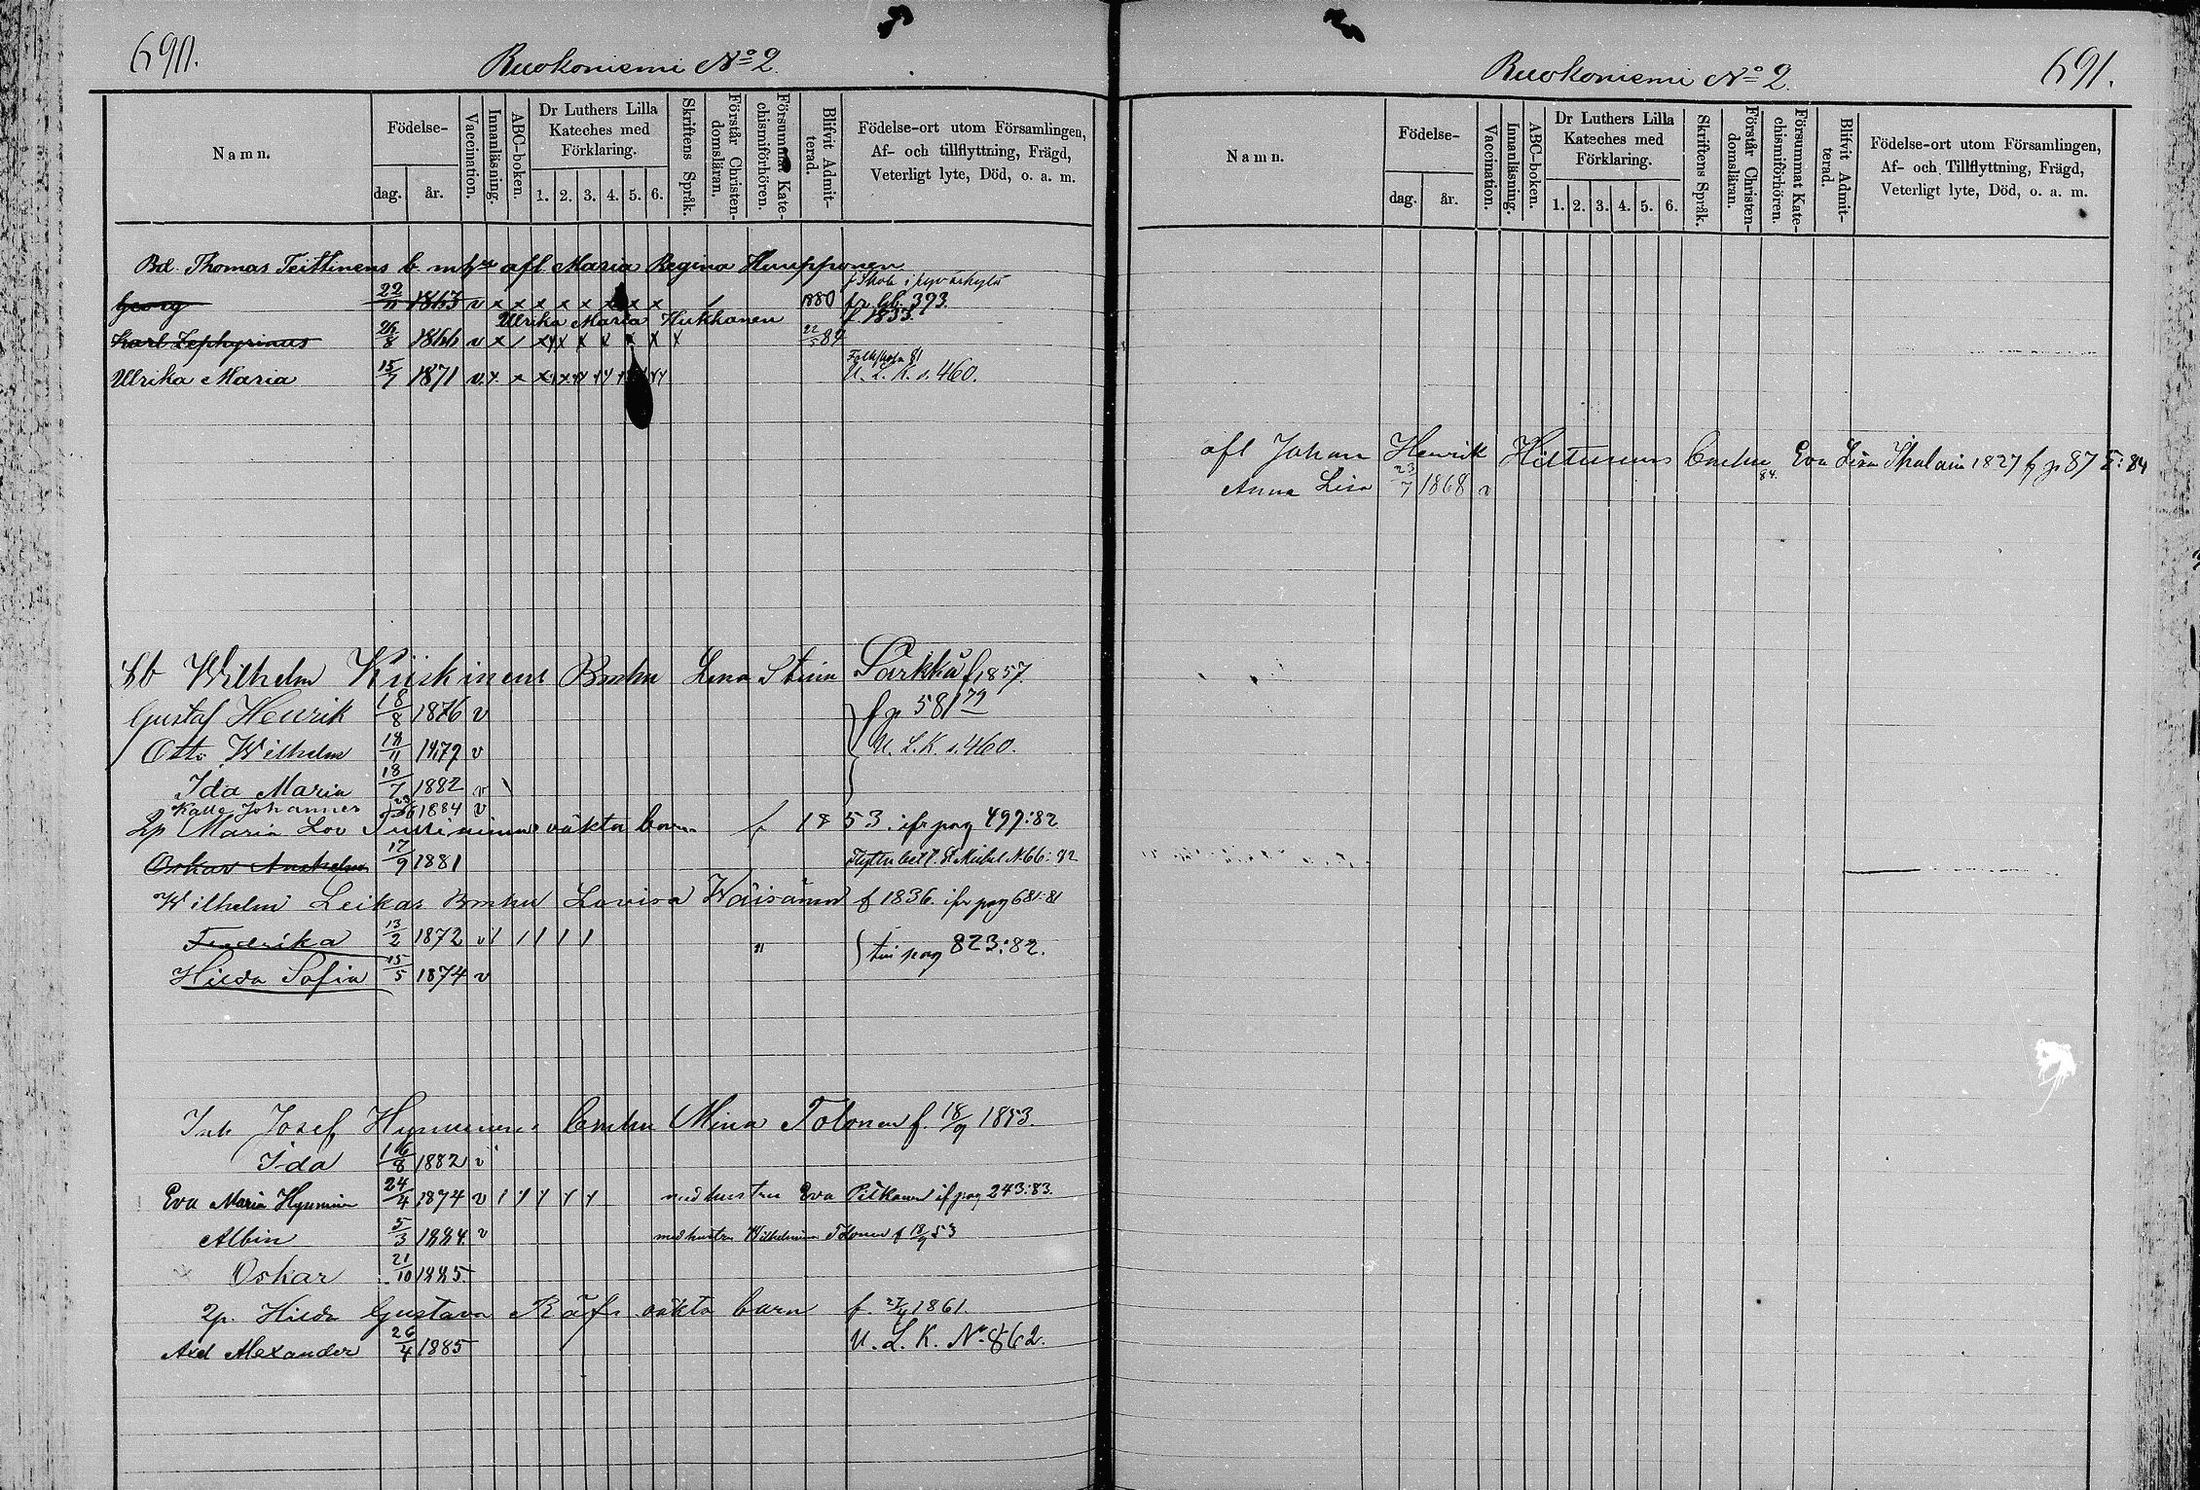 690.
Ruokoniemi No 2.
Namn.
Födelse-
dag.
år.
Vaccination.
Innanläsning.
ABC-boken.
Dr Luthers Lilla
Kateches med
Förklaring.
1. 2. 3. 4. 5. 6.
Skriftens Språk.
Förstår Christen-
domsläran.
Försummat Kate-
chismiförhören.
Blifvit Admit-
terad.
Födelse-ort utom Församlingen,
Af- och tillflyttning, Frägd,
Veterligt lyte, Död, o. a. m.
Bd. Thomas Teittinens b. m afl Maria Regina Hempponen
Georg 22/11 1863 v x x x x x x x x 1880 fr. lb. 393.
Ulrika Maria Hukkanen f. 1853.
Karl Zephyrinus 26/8 1866 v x / x x x x x x x 22/5 84
Folkskola 81
Ulrika Maria 15/7 1871 v U. L. K. s. 460.
Wilhelm Kiiskinens Bmhu Lena Stina Särkkä f 1857.
Gustaf Henrik 18/8 1876 v f p 581 79
Otto Wilhelm 18/11 1879 v U. L. K. s. 460.
Ida Maria 18/7 1882 v
Kalle Johannes 1884 v
Maria Lov oäkta barn f 1853. ifr pag 499:82
Oskar 17/9 1881 St Michel N. 66: 92
Wilhelm Leikas Bmhu Lovisa Wäisänen f 1836. ifr pag 681:81
Fredrika 13/2 1872 v / / / / /
tin pag 823:82.
Hilda Sofia 15/5 1874 v
Inh Josef Hynninens Bmhu Mina Tolonen f. 18/9 1853.
Ida 16/8 1882 v
Eva Maria Hynninen 24/4 1874 v med hustru Eva Pitkänen if pag 243:83.
Albin 5/3 1884. v med hustru Wilhelmina Tolonen f 18/9 53
Oskar 21/10 1885.
2p. Hilda Gustava Räfs oäkta barn f. 1861.
Axel Alexander 26/4 1885 U. L. K. No 862.
Ruokoniemi No 2.
691.
Namn.
Födelse-
dag.
år.
Vaccination.
Innanläsning.
ABC-boken.
Dr Luthers Lilla
Kateches med
Förklaring.
1. 2. 3. 4. 5. 6.
Skriftens Språk.
Förstår Christen-
domsläran.
Försummat Kate-
chismiförhören.
Blifvit Admit-
terad.
Födelse-ort utom Församlingen,
Af- och Tillflyttning, Frägd,
Veterligt lyte, Död, o. a. m.
afl Johan Henrik Hiltunens Enehu Eva Lisa 1827 f p 87 I: 84
Anna Lisa 23/7 1868 v 84.